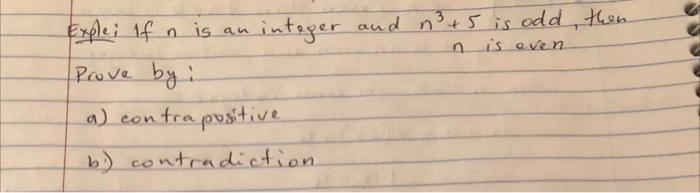 Exple; If n is an integer and n³+5 is odd, then
n is even
Prove by:
a) contrapositive
b) contradiction